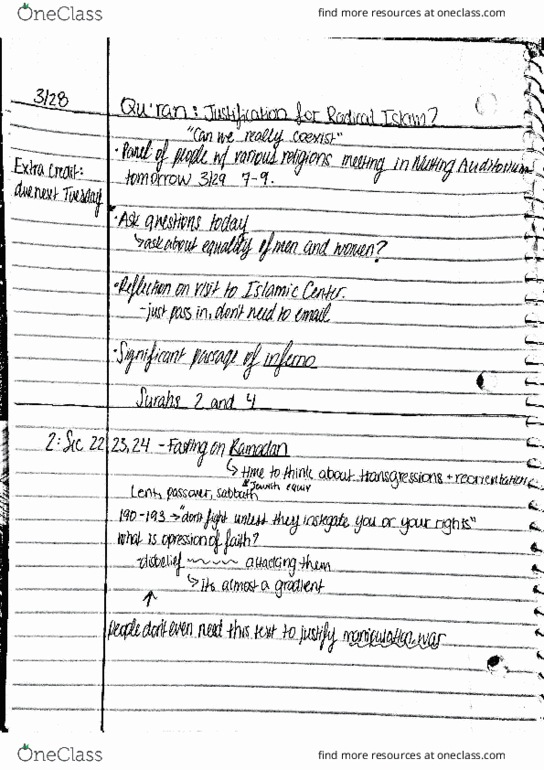 OneClass
find more resources at oneclass.com
3/28
Qu'ran: Justification for Radical Islam?
"Can we really coexist"
• Panel of people w/ various religions meeting in Nutting Auditorium
tomorrow 3/29 7-9.
Extra Credit:
due next Tuesday
• Ask questions today
↳ ask about equality of men and women?
• Reflection on visit to Islamic Center.
- just pass in, don't need to email
• Significant passage of inferno
Surahs 2 and 4
2: Sec 22, 23, 24 - Fasting on Ramadan
↳ time to think about transgressions + reorientation
& Jewish equiv
Lent, passover, sabbath
190-193 → "don't fight unless they instegate you or your rights"
What is opression of faith?
- disbelief ~~~~ attacking them
↳ its almost a gradient
↑
people don't even need this text to justify manipulation, war
OneClass
find more resources at oneclass.com